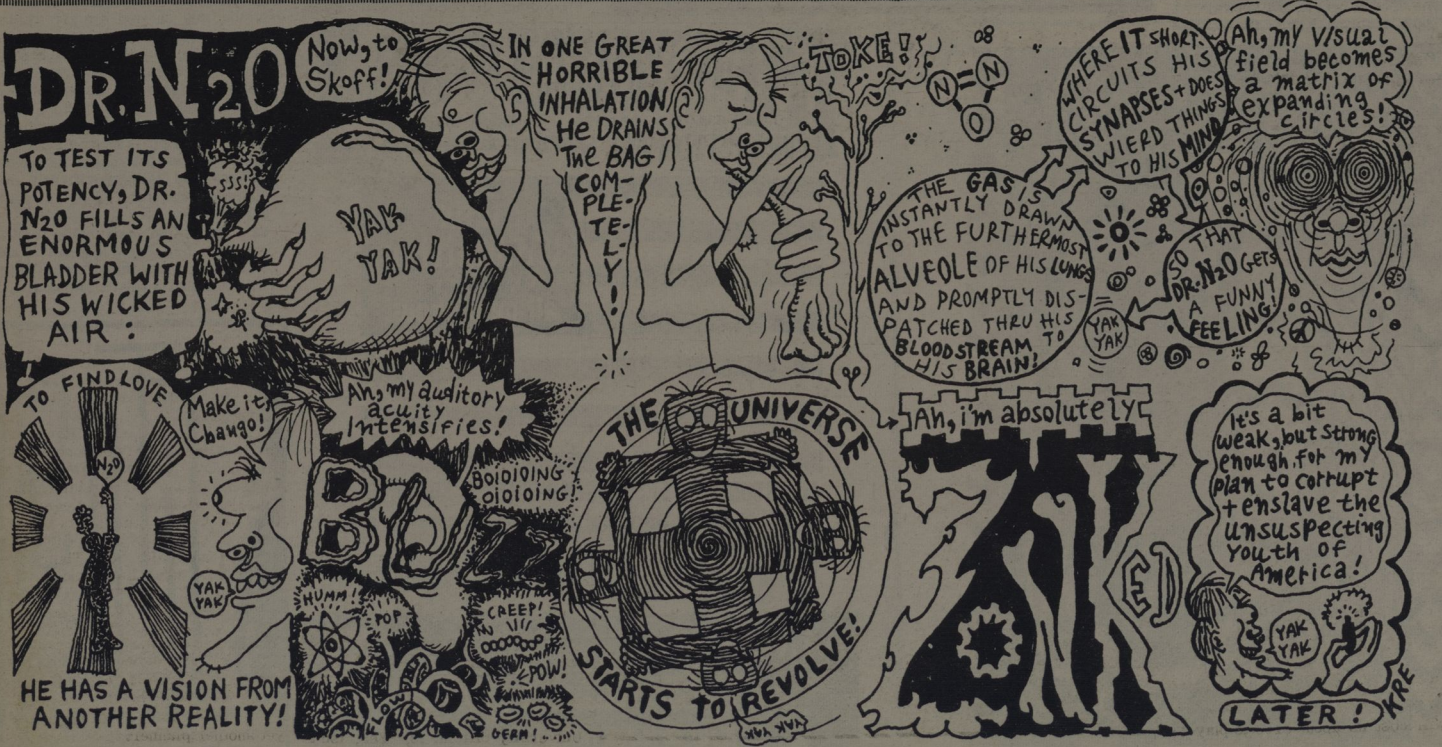 DR. N2O
Now, to
Skoff!
TO TEST ITS
POTENCY, DR.
N2O FILLS AN
ENORMOUS
BLADDER WITH
HIS WICKED
AIR:
SSS!
YAK
YAK!
IN ONE GREAT
HORRIBLE
INHALATION
He DRAINS
The BAG
COM-
PLE-
TE-
L-
Y!
TOKE!
N
N
O
THE GAS IS
INSTANTLY DRAWN
TO THE FURTHERMOST
ALVEOLE OF HIS LUNGS
AND PROMPTLY DIS-
PATCHED THRU HIS
BLOODSTREAM TO
HIS BRAIN!
WHERE IT SHORT-
CIRCUITS HIS
SYNAPSES + DOES
WIERD THINGS
TO HIS MIND
SO THAT
DR. N2O GETS
A FUNNY
FEELING!
YAK
YAK
Ah, my visual
field becomes
a matrix of
expanding
circles!
TO FIND LOVE
N2O
Make it,
Chango!
YAK
YAK
HE HAS A VISION FROM
ANOTHER REALITY!
Ah, my auditory
acuity
Intensifies!
BOIOIOING
OIOIOING!
BUZZ
HUMM!
POP
CREEP!
POW!
GLOW
GERM!
THE UNIVERSE
STARTS TO REVOLVE!
YAK YAK
Ah, i'm absolutely
ZONKED
It's a bit
weak, but strong
enough for my
plan to corrupt
+ enslave the
unsuspecting
youth of
America!
YAK
YAK
LATER!